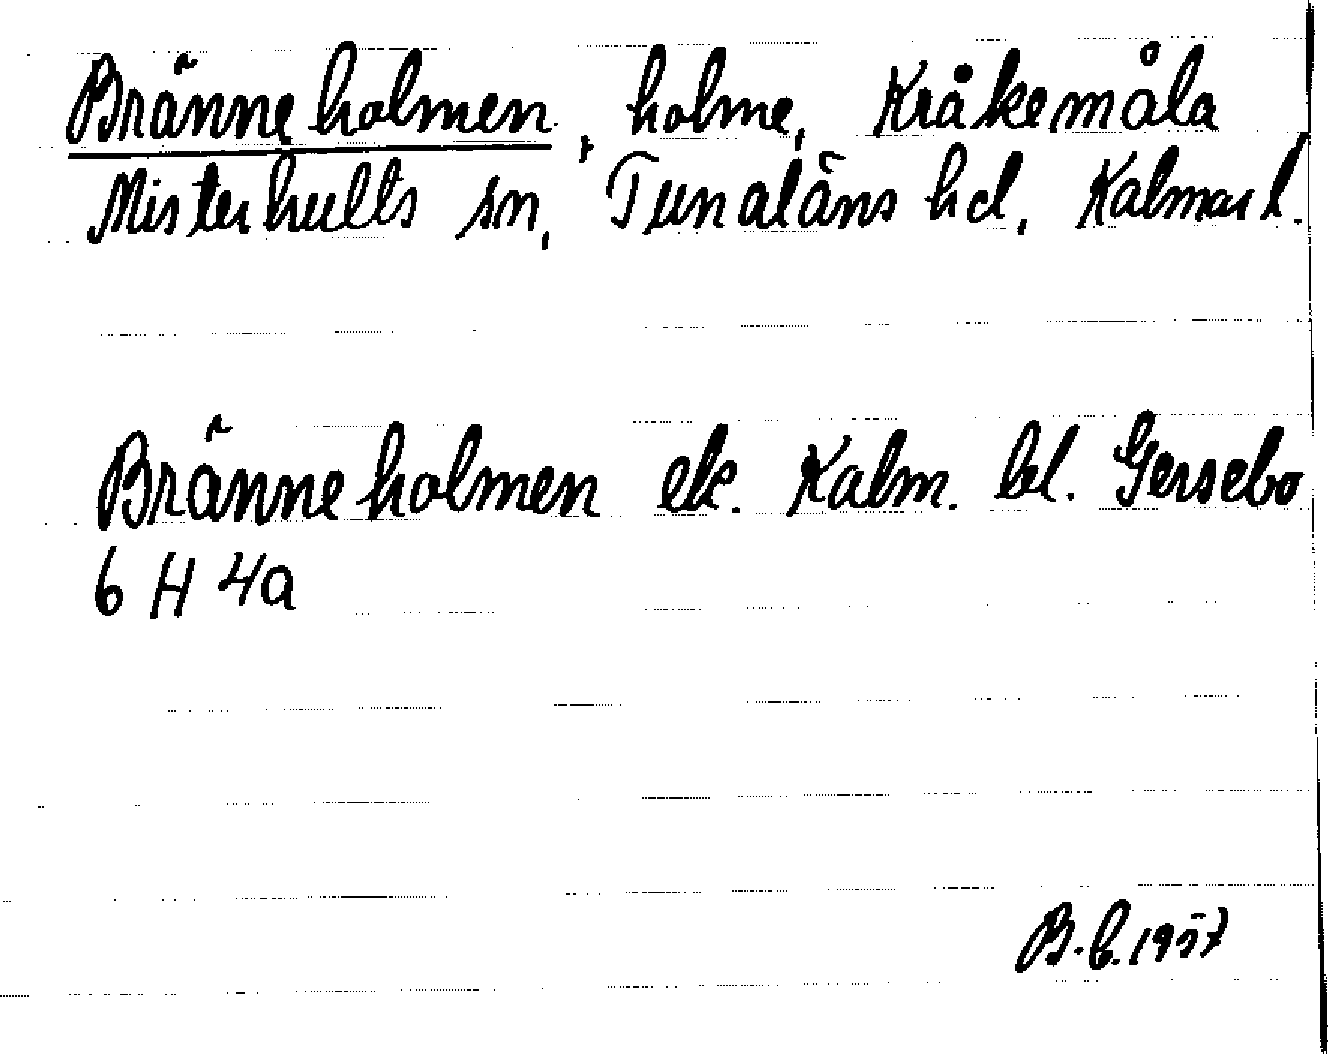 Bränneholmen, holme, Kråkemåla
Misterhults sn, Tunaläns hd, Kalmar l.
Bränneholmen ek. Kalm. bl. Gersebo
6 H 4a
B.C. 1957